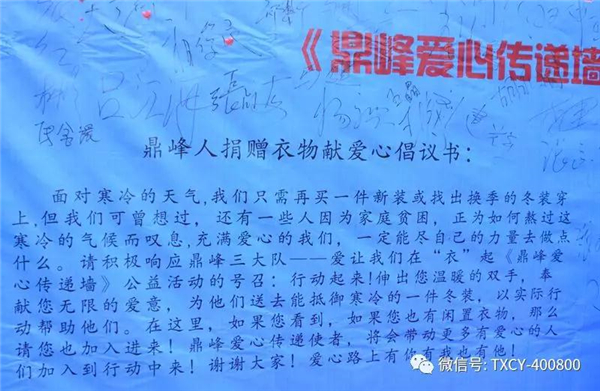 《鼎峰爱心传递墙
鼎峰人捐赠衣物献爱心倡议书:
面对寒冷的天气,我们只需再买一件新装或找出换季的冬装穿
上,但我们可曾想过,还有一些人因为家庭贫困,正为如何熬过这
寒冷的气候而叹息,充满爱心的我们,一定能尽自己的力量去做点
什么。请积极响应鼎峰三大队——爱让我们在“衣”起《鼎峰爱
心传递墙》公益活动的号召:行动起来!伸出您温暖的双手,奉
献您无限的爱意,为他们送去能抵御寒冷的一件冬装,以实际行
动帮助他们。在这里,如果您看到,如果您也有闲置衣物,那么
请您也加入进来!鼎峰爱心传递使者,将会带动更多有爱心的人
们加入到行动中来!谢谢大家!爱心路上有你有我也有他!
微信号: TXCY-400800